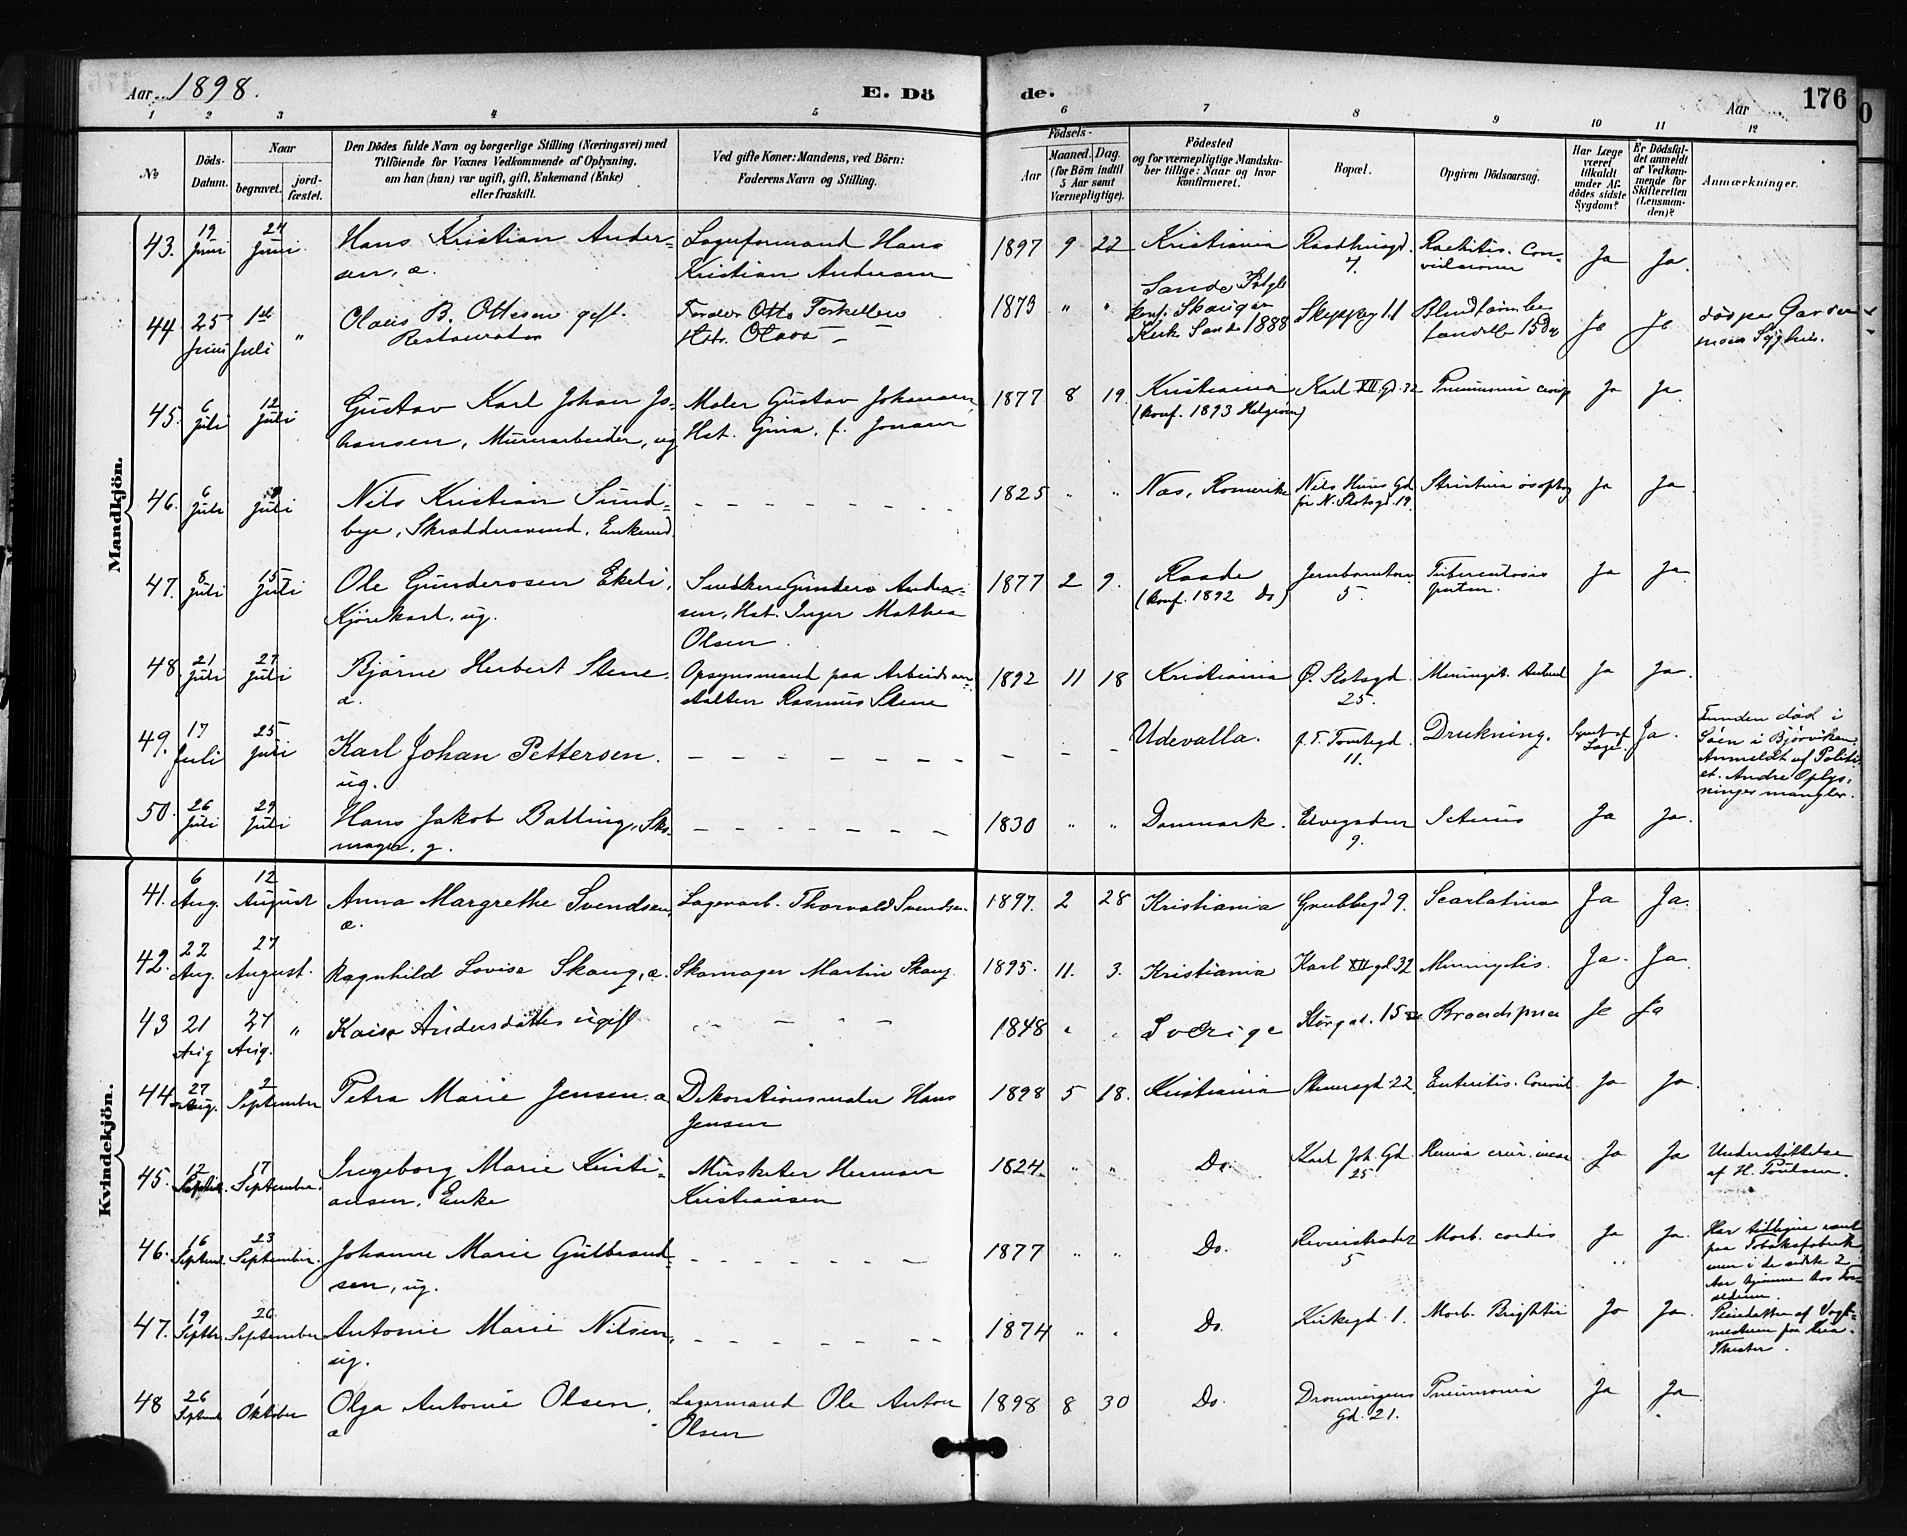 Aar 1898.
E. Dö
de.
Aar
176
1 2 3 4 5 6 7 8 9 10 11 12
№
Döds-
Datum.
Naar
begravet.
jord-
fæstet.
Den Dödes fulde Navn og borgerlige Stilling (Næringsvei) med
Tilföiende for Voxnes Vedkommende af Oplysning,
om han (hun) var ugift, gift, Enkemand (Enke)
eller fraskilt.
Ved gifte Koner: Mandens, ved Börn:
Faderens Navn og Stilling.
Födsels-
Aar
Maaned. Dag
(for Börn indtil
5 Aar samt
Værnepligtige).
Födested
og for værnepligtige Mandska-
ber tillige: Naar og hvor
konfirmeret.
Bopæl.
Opgiven Dödsaarsag.
Har Læge
været
tilkaldt
under Af-
dödes sidste
Sygdom?
Er Dödsfal-
det anmeldt
af Vedkom-
mende for
Skifteretten
(Lensman-
den)?
Anmærkninger.
Mandkjön.
43. 19 Juni 24 Juni Hans Kristian Ander-
sen, a. Lagerformand Hans
Kristian Andersen 1897 9 22 Kristiania Raadhusgd.
7. Rachitis. Con-
vulsioner Ja Ja.
44. 25 Juni 1ste Juli " Olaus B. Ottesen gift.
Restauratør Forældr. Otto Torkelsen
Hstr. Olava — 1873 " " Sande Prstgl
konf. Skauger
Kirke Sande 1888 Skippeg 11 Ja Ja
45. 6 Juli 12 Juli Gustav Karl Johan Jo-
hansen, Murerarbeider, ug Maler Gustav Johansen,
Hst. Gina, f. Jonsen 1877 8 19. Kristiania
(konf. 1893 Helgesen) Karl XII Gd. 32 Pneumonia croup Ja Ja.
46. 6 Juli Juli Nils Kristian Sund-
bye, Skræddersvend, Enkemd. 1825 " " Næs, Romerike Nils Huus Gd.
før N. Slotsgd. 19. Strictura øsophag Ja Ja.
47. 8 Juli 15 Juli Ole Gunderosen Ekeli,
Kjørekarl, ug. Snedker Gunders Andre-
sen, Hst. Inger Mathea
Olsen. 1877 2 9. Raade
(konf. 1892 Do) Jernbanetorv
5. Tuberculosis
pulm. Ja Ja.
48. 21 Juli 27 Juli Bjarne Herbert Stene,
a. Opsynsmand paa Arbeidsan-
stalten Rasmus Stene 1892 11 18 Kristiania Ø. Slotsgd.
25. Meningit. Ja Ja.
49. 17 Juli 25 Juli Karl Johan Pettersen.
ug. Udevalla. f. T. Tomtegd.
11. Drukning. Synet af
Læge. Ja. Funden død i
Søen i Bjørviken.
Anmeldt af Politi-
et. Andre Oplys-
ninger mangler.
50. 26 Juli 29 Juli Hans Jakob Balling, Sko-
mager, g. 1830 " " Danmark. Elvegaden
9. Icterus Ja Ja.
Kvindekjön.
41. 6 Aug. 12 August Anna Margrethe Svendsen,
a. Lagerarb. Thorvald Svendsen. 1897. 2 28 Kristiania Grubbegd 9. Scarlatina Ja Ja.
42. 22 Aug. 27 August. Ragnhild Lovise Skaug, a. Skomager Martin Skaug. 1895. 11. 3. Kristiania Karl XII gd 32 Meningitis. Ja. Ja.
43 21 Aug 27 Aug. " Kaisa Andersdatter ugift 1848 " " Sverige Storgat. 15 Ja Ja
44. 27 Aug. 2 September Petra Marie Jensen. a Dekorationsmaler Hans
Jensen 1898 5 18. Kristiania Stenersgd. 22. Enteritis. Convul. Ja Ja.
45. 12 Septbr. 17 September. Ingeborg Marie Kristi-
ansen, Enke Musketer Herman
Kristiansen 1824. " " Do. Karl Joh. Gd.
25. Ja Ja Understøttelse
af H. Poulsen.
46. 16 Septemb. 23 September. Johanne Marie Gulbrand-
sen, ug. 1877 " " Do. Revierstrædet
5 Morb. cordis Ja Ja. Har tidligere været
paa Tobaksfabrik
men i de sidste 2
Aar hjemme hos For-
ældrene.
47. 19 Septbr. 26 September Antonie Marie Nilsen,
ug. 1874 " " Do. Kirkegd. 1. Morb. Brightii Ja Ja. Pleiedatter af Vagt-
mesteren paa Kria.
Theater.
48 26 Septemb 1 Oktober Olga Antonie Olsen,
a Lagermand Ole Anton
Olsen 1898 8 30 Do. Dronningens
Gd. 21. Pneumonia Ja Ja.